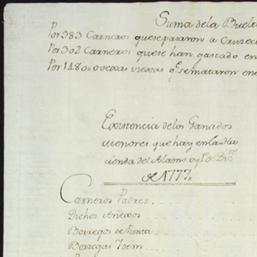 Suma dela Buelta
Por 383 Carneros que separaron a Cruzero
Por 302 Carneros que se han gastado en
Por 1480 ovexas viexas q.e se mataron en
Existencia delos Ganados
menores que hay en la Ha
cienda del Alamo oy
de 1777.
Carneros Padres
Dichos Añexos
Borregos de
Borregas Ydem